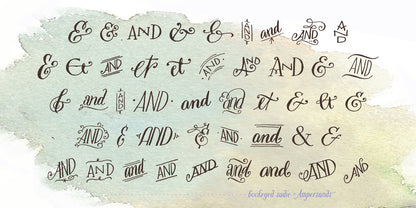 & & AND & & AND and AND AND
& & AND et et AND AND AND & AND
& and AND ·AND· and and et & & &
AND & AND & AND and & &
AND AND and AND AND and and AND AND